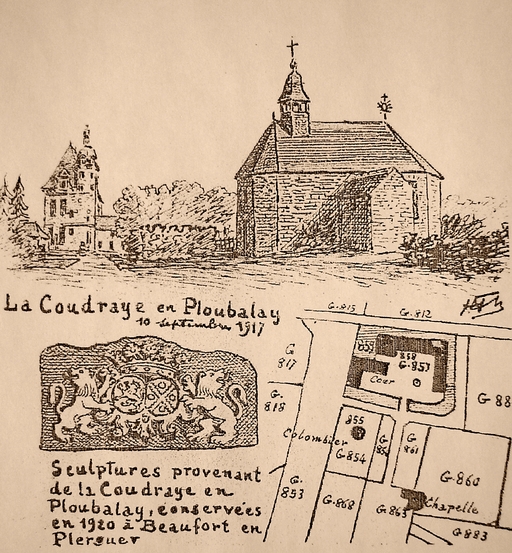 La Coudraye en Ploubalay
10 septembre 1917
Sculptures provenant
de la Coudraye en
Ploubalay, conservées
en 1920 à Beaufort en
Plerguer
G.815
G.812
G
817
G.
818
859
858
G.853
Cour
G 88
Colombier
855
G.854
G
861
G.860
G.
853
G.868
G.863
Chapelle
G.883